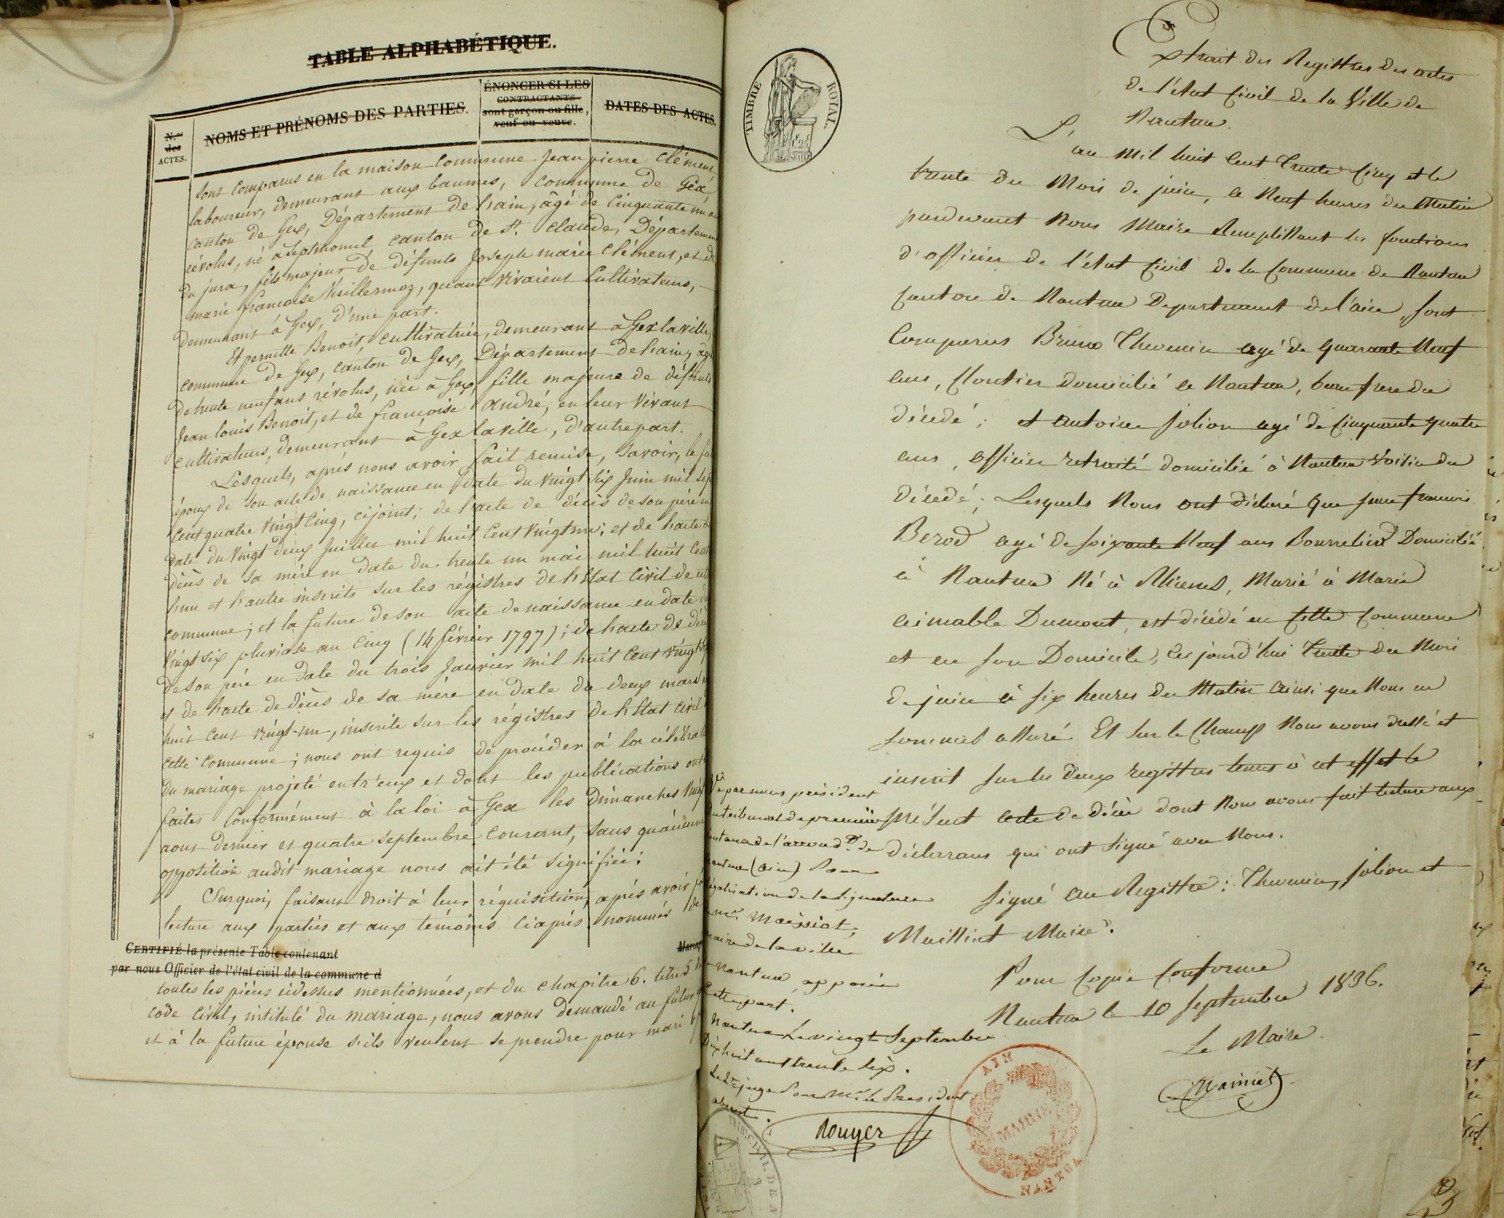 TABLE ALPHABÉTIQUE.
N.os des ACTES.
NOMS ET PRÉNOMS DES PARTIES.
ÉNONCER SI LES CONTRACTANTS sont garçon ou fille, veuf ou veuve.
DATES DES ACTES.
sont comparus en la maison commune Jean pierre Clément,
laboureur, demeurant aux baumes, commune de Gex
canton de Gex, Département de Lain, agé de Cinquante un ans
révolus, né à Septmoncel canton de St. Claude, Département
du jura, fils majeur de défunts Joseph marie Clément, et de
marie françoise Vuillermoz, quand vivaient Cultivateurs,
demeurant à Gex, d'une part.
Et pernille Benoit, cultivatrice, demeurant à Gex la ville,
commune de Gex, canton de Gex, Département de Lain, agée
de trente neuf ans révolus, née à Gex, fille majeure de défunts
Jean louis Benoit, et de françoise andré, en leur vivant
cultivateurs, demeurant à Gex la ville, d'autre part.
Lesquels, après nous avoir fait remise, savoir, le futur
époux de son acte de naissance en date du vingt six Juin mil sept
cent quatre vingt cinq, cijoint; de l'acte de décès de son père en
date du vingt deux juillet mil huit cent vingt un; et de l'acte de
décès de sa mère en date du trente un mai mil huit cent
l'un et l'autre inscrits sur les régistres de l'Etat Civil de cette
commune; et la future de son acte de naissance en date du
vingt six pluviose an cinq (14 février 1797); de l'acte de décès
de son père en date du trois Janvier mil huit cent vingt
et de l'acte de décès de sa mère en date du deux mars mil
huit cent vingt-un, inscrits sur les régistres de l'Etat civil de
cette commune; nous ont requis de procéder à la célébration
du mariage projeté entr'eux et dont les publications ont été
faites conformément à la loi à Gex les Dimanches vingt
aout dernier et quatre septembre courant, sans qu'aucune
opposition audit mariage nous ait été signifiée:
Surquoi, faisant droit à leur réquisition, après avoir
lecture aux parties et aux témoins ciaprès nommés de
CERTIFIÉ la présente Table contenant
par nous Officier de l'état civil de la commune d
toutes les pièces cidessus mentionnées, et du chapitre 6. titre 5 du
code civil, intitulé du mariage, nous avons demandé au futur
et à la future épouse s'ils veulent se prendre pour mari
TIMBRE ROYAL.
Extrait des Registres des actes
de l'état Civil de la Ville de
Nantua.
L'an mil huit Cent Trente Cinq et le
trente du Mois de juin, à Neuf heures du Matin
pardevant Nous Maire Remplissant les fonctions
d'officier de l'état Civil de la Commune de Nantua
Canton de Nantua Departement de l'ain, sont
Comparus Bruno Thevenin agé de quarante Neuf
ans, Cloutier domicilié à Nantua, beau frere du
décédé; et Antoine Jolion agé de Cinquante quatre
ans, officier retraité domicilié à Nantua Voisin du
décédé; Lesquels Nous ont déclaré que jean francois
Berod agé de soixante Neuf ans Bourrelier Domicilié
à Nantua Né à, Marié à Marie
aimable Dumont, est décédé en Cette Commune
et en son Domicile, Ce jourd'hui Trente du Mois
de juin à six heures du Matin ainsi que Nous en
sommes assuré. Et sur le Champ Nous avons dressé et
inscrit sur les deux registres tenus à cet effet le
présent acte de décès dont Nous avons fait lecture aux
déclarans qui ont signé avec Nous.
Signé au Registre: Thevenin, Jolion et
Maissiat Maire.
Pour Copie Conforme
Nantua le 10 Septembre 1836.
Le Maire.
Vu par nous président
du tribunal de première
instance de l'arrond.t de
nantua (ain) Pour
légalisation de la signature
de mr. Maissiat,
maire de la ville
de nantua, apposée
cette part.
Nantua Le vingt Septembre
Dix huit cent trente six.
Le 2e juge Pour Mr. le Président
absent.
Rouyer
AIN
MAIRIE
NANTUA